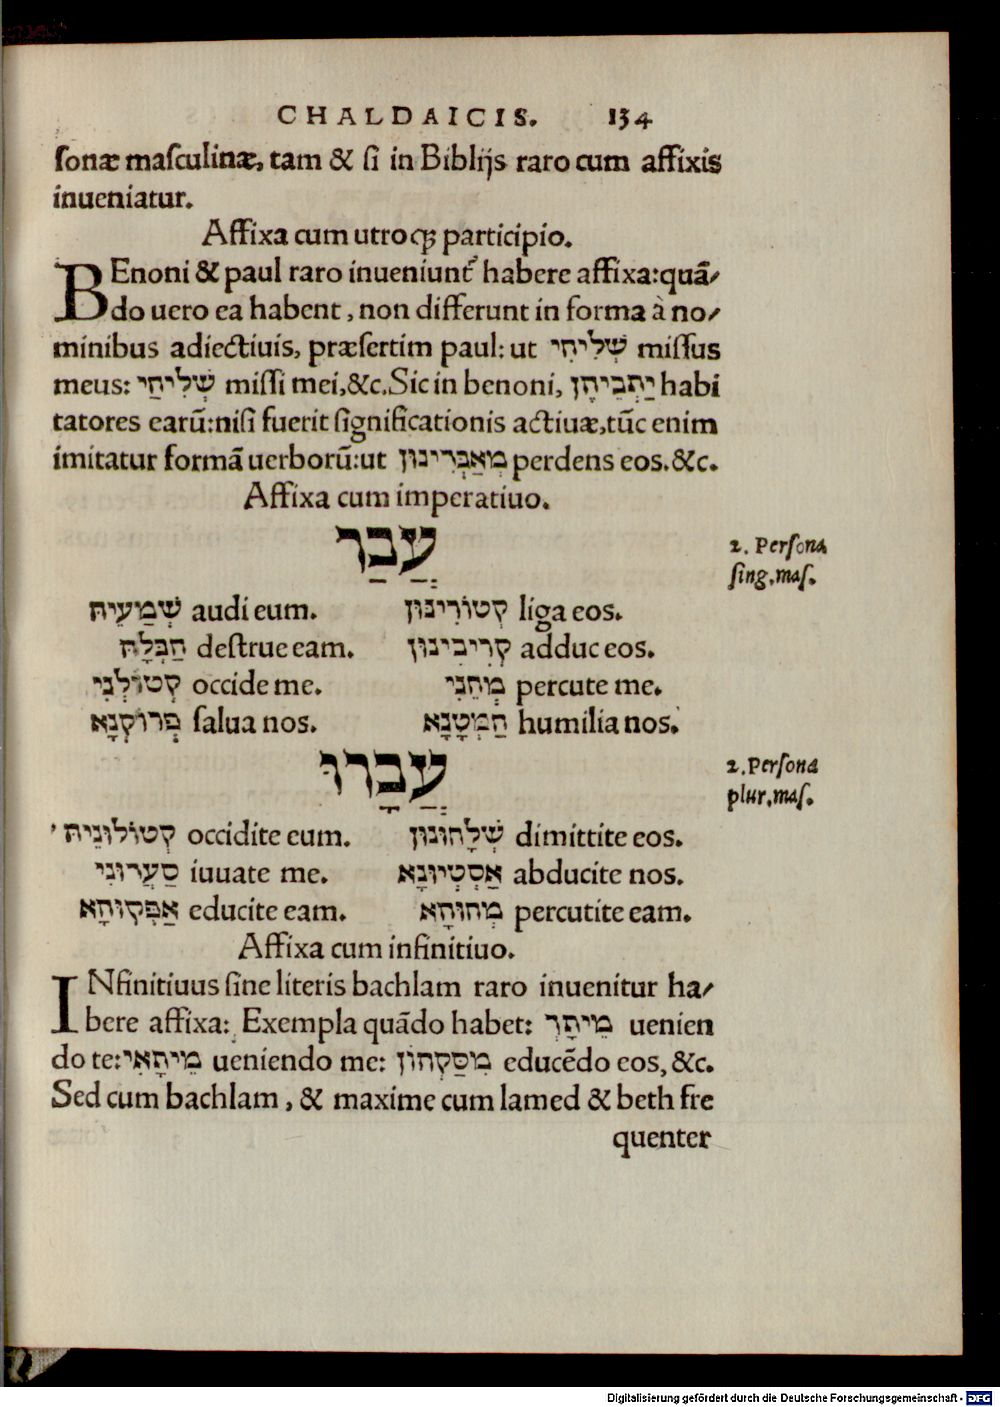 CHALDAICIS. 134
sonæ masculinæ, tam & si in Biblijs raro cum affixis
inueniatur.
Affixa cum utroqꝫ participio.
BEnoni & paul raro inueniunt᷑ habere affixa:quã/
do uero ea habent, non differunt in forma à no/
minibus adiectiuis, præsertim paul: ut שְׁלִיחִי missus
meus: שְׁלִיחַי missi mei,&c.Sic in benoni, יַתְבֵיהֶן habi
tatores earũ:nisi fuerit significationis actiuæ,tũc enim
imitatur formã uerborũ:ut מְאַבְּרִינוּן perdens eos.&c.
Affixa cum imperatiuo.
עֲבַר
2. Persona
sing.mas.
שְׁמַעֵיהּ audi eum. קְטוֹרִינוּן liga eos.
חַבְּלָהּ destrue eam. קְרִיבִינוּן adduc eos.
קְטוֹלְנִי occide me. מְחֵנִי percute me.
פְּרוֹקְנָא salua nos. הַמְטָנָא humilia nos.
עֲבָרוּ
2.Persona
plur.mas.
קְטוֹלוּנֵיהּ occidite eum. שְׁלָחוּנוּן dimittite eos.
סַעֲרוּנִי iuuate me. אַסְטְיוּנָא abducite nos.
אַפְּקוּהָא educite eam. מְחוּהָא percutite eam.
Affixa cum infinitiuo.
INfinitiuus sine literis bachlam raro inuenitur ha/
bere affixa: Exempla quãdo habet: מֵיתָךְ uenien
do te:מֵיתָאִי ueniendo me: מִסַּקְהוֹן educẽdo eos, &c.
Sed cum bachlam, & maxime cum lamed & beth fre
quenter
Digitalisierung gefördert durch die Deutsche Forschungsgemeinschaft - DFG